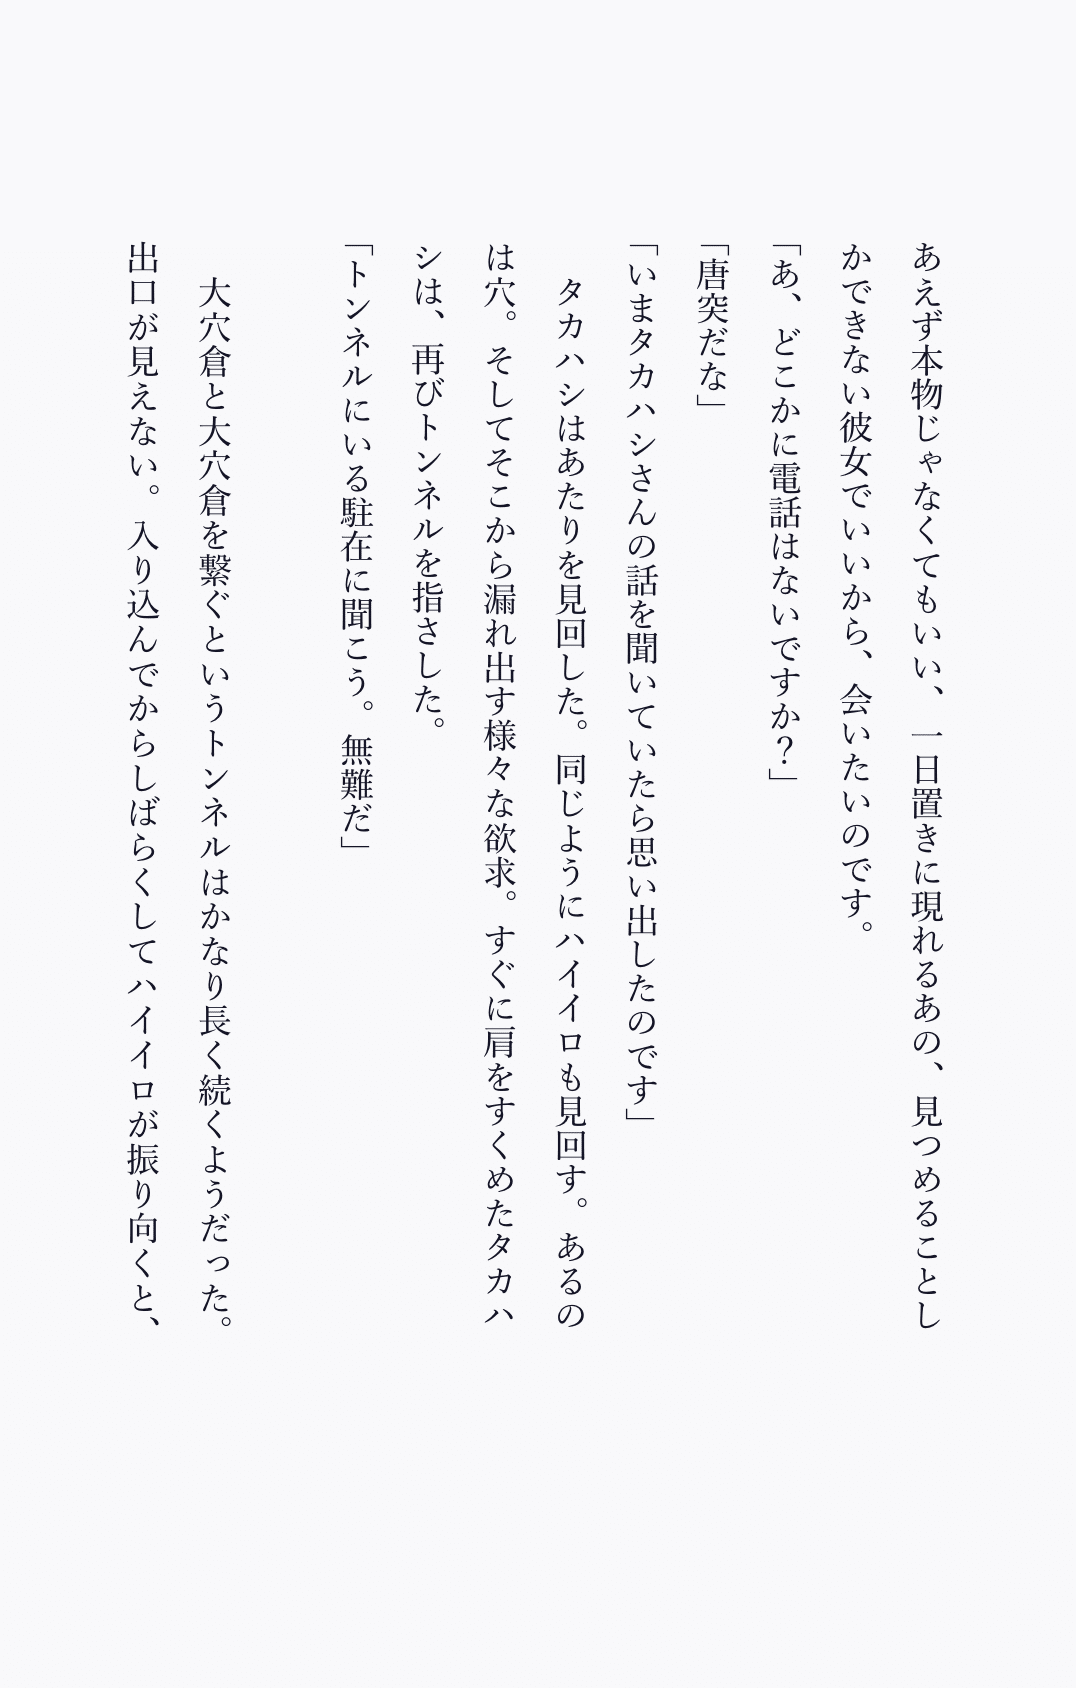 あえず本物じゃなくてもいい、一日置きに現れるあの、見つめることし
かできない彼女でいいから、会いたいのです。
「あ、どこかに電話はないですか？」
「唐突だな」
「いまタカハシさんの話を聞いていたら思い出したのです」
　タカハシはあたりを見回した。同じようにハイイロも見回す。あるの
は穴。そしてそこから漏れ出す様々な欲求。すぐに肩をすくめたタカハ
シは、再びトンネルを指さした。
「トンネルにいる駐在に聞こう。無難だ」
　大穴倉と大穴倉を繋ぐというトンネルはかなり長く続くようだった。
出口が見えない。入り込んでからしばらくしてハイイロが振り向くと、